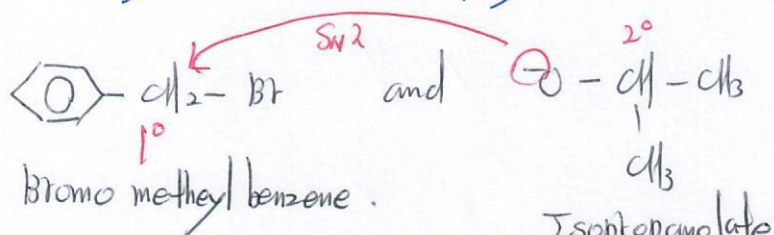 SN2
2°
CH2 - Br and ⊖O - CH - CH3
1°
CH3
Bromo metheyl benzene.
Isopropanolate